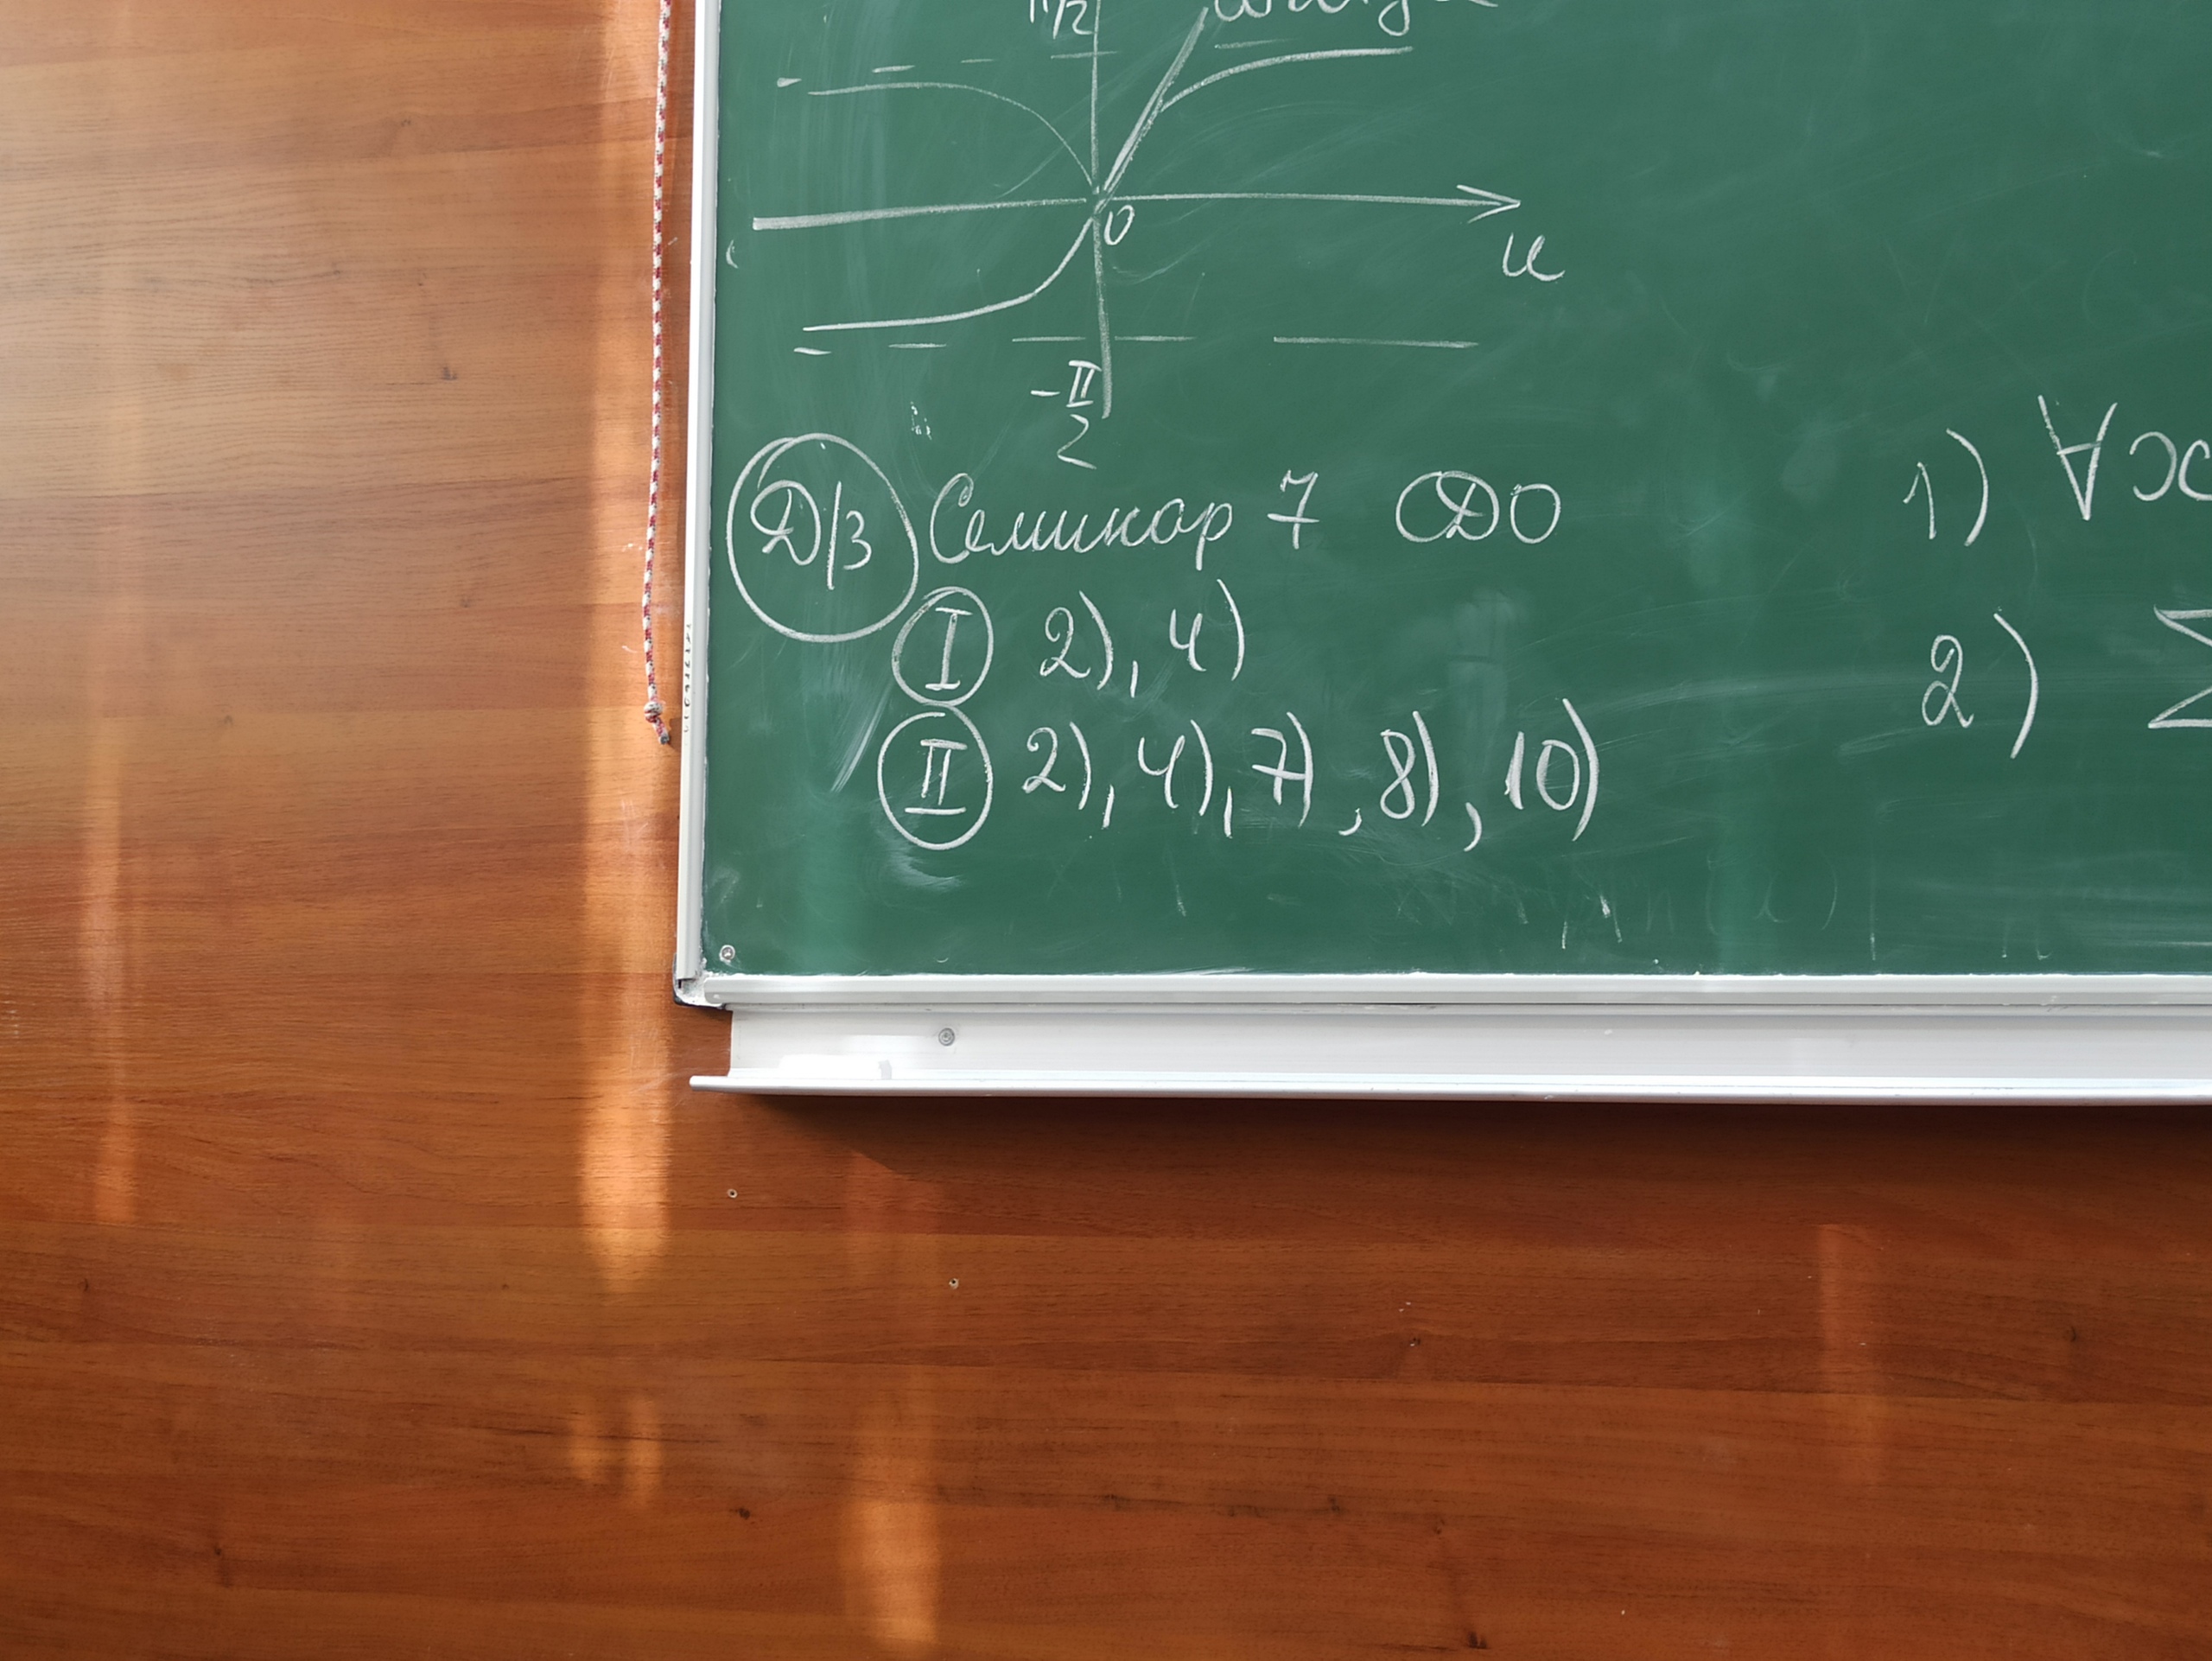 π/2
0
u
-π/2
Д/з Семинар 7 СДО
I 2), 4)
II 2), 4), 7), 8), 10)
1) ∀x
2) Σ